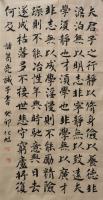 夫君子之行靜以修身儉以養德
非澹泊無以明志非寧靜無以致遠夫
學須靜也才須學也非學無以廣才非志無以成
學淫慢則不能勵精
險躁則不能治性年與時馳意與日去遂
成枯落多不接世悲守窮廬將復
何及 諸葛亮誡子書 癸卯